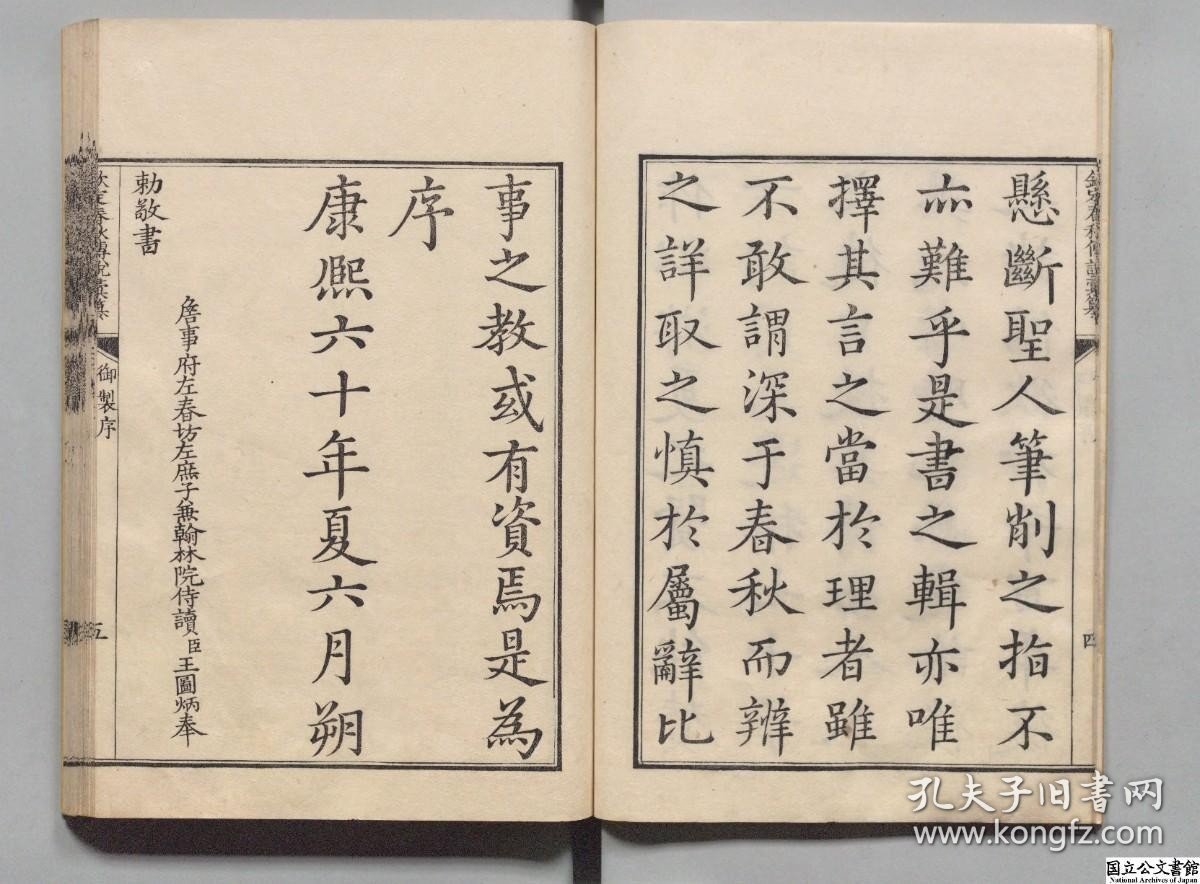 欽定春秋傳說彙纂
四
懸斷聖人筆削之指不
亦難乎是書之輯亦唯
擇其言之當於理者雖
不敢謂深于春秋而辨
之詳取之慎於屬辭比
事之教或有資焉是為
序
康熙六十年夏六月朔
詹事府左春坊左庶子兼翰林院侍讀臣王圖炳奉
勅敬書
欽定春秋傳說彙纂
御製序
五
孔夫子旧书网
www.kongfz.com
国立公文書館
National Archives of Japan